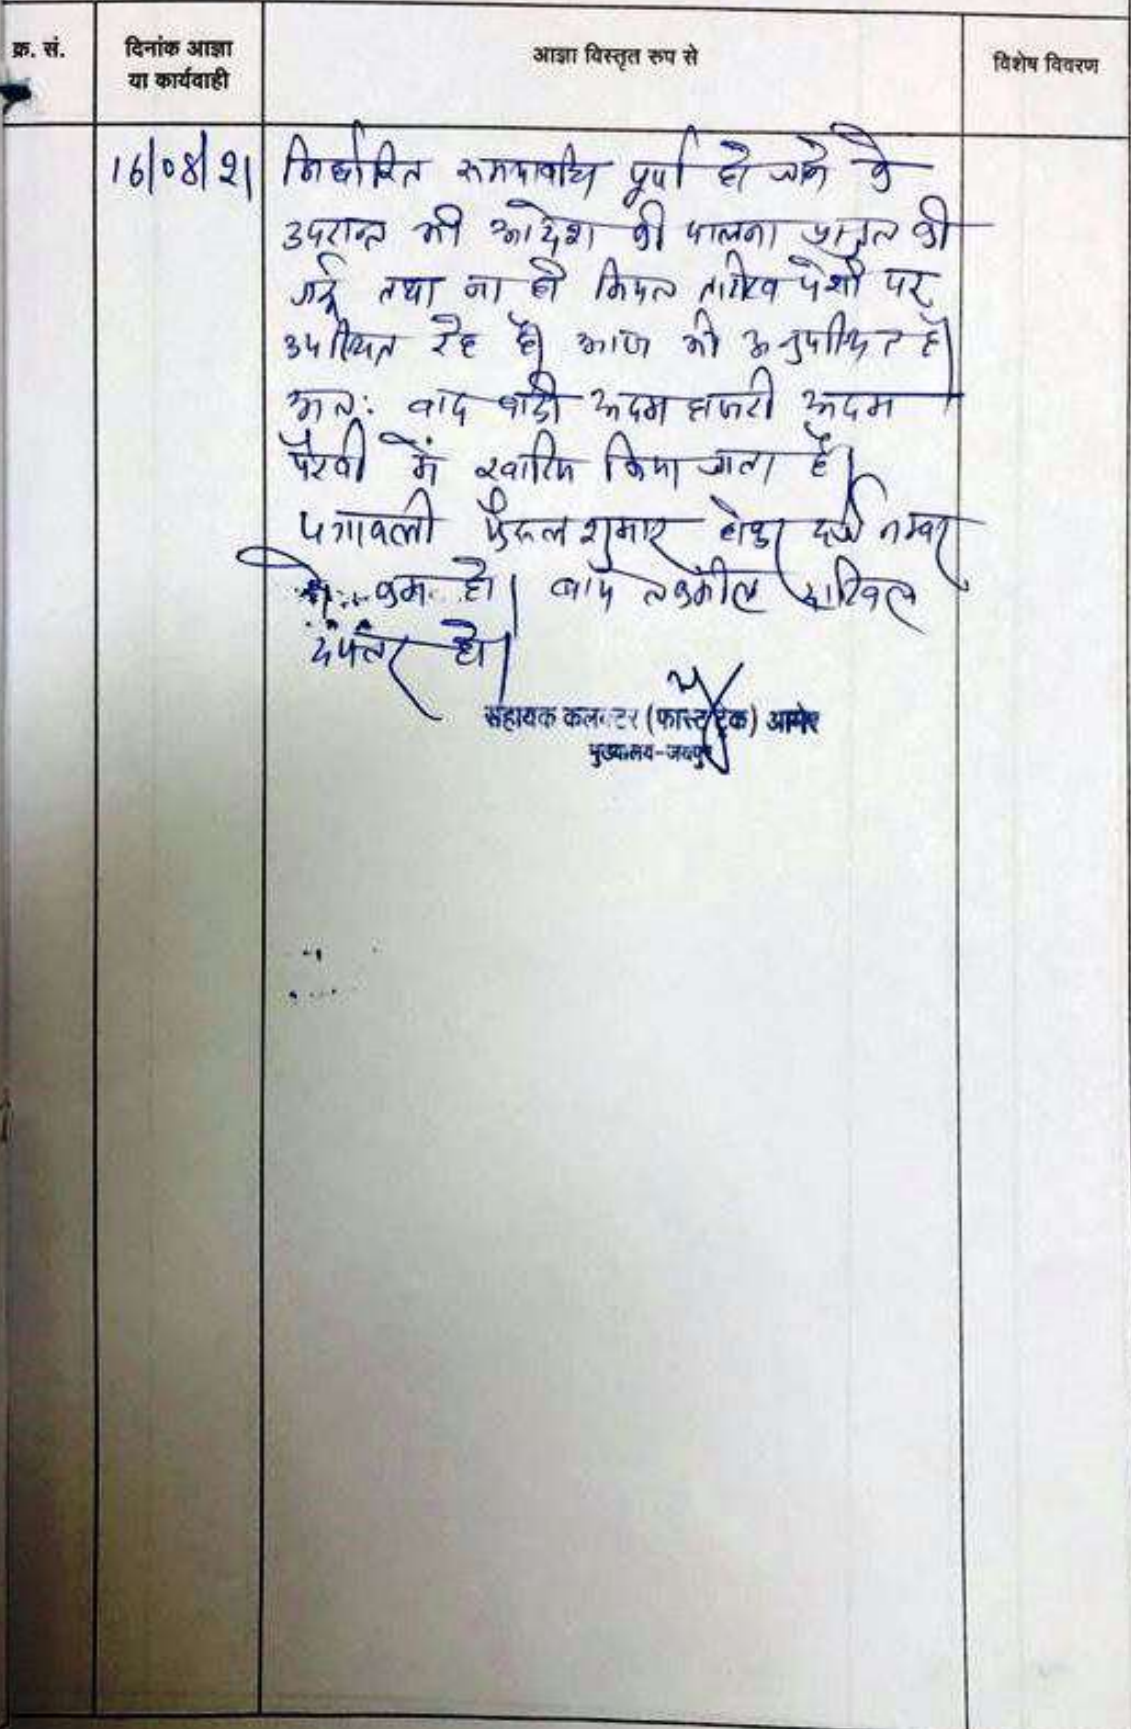 क्र. सं.
दिनांक आज्ञा
या कार्यवाही
आज्ञा विस्तृत रुप से
विशेष विवरण
16/08/21
निर्धारित समयावधि पूर्ण हो जाने के
उपरान्त भी आदेश की पालना प्रस्तुत की
गई तथा ना ही नियत तारीख पेशी पर
उपस्थित रहे है। आज भी अनुपस्थित है।
अतः वाद वादी अदम हाजरी अदम
पैरवी में खारिज किया जाता है।
पत्रावली फैसल शुमार होकर दर्ज नम्बर
से कम हो। बाद तकमील दाखिल
दफ्तर हो।
सहायक कलक्टर (फास्ट ट्रेक) आमेर
मुख्यालय-जयपुर